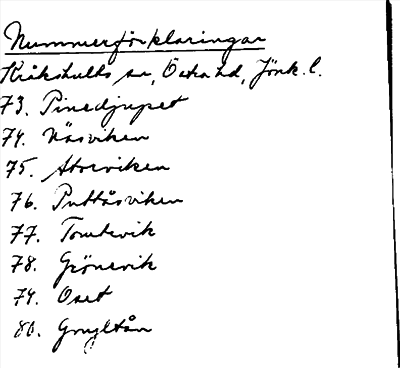 Nummerförklaringar
Kråkshults sn, Östra hd, Jönk. l.
73. Pinedjupet
74. Näsviken
75. Storviken
76. Puttåsviken
77. Tomtevik
78. Grönevik
79. Oset
80. Gryltån